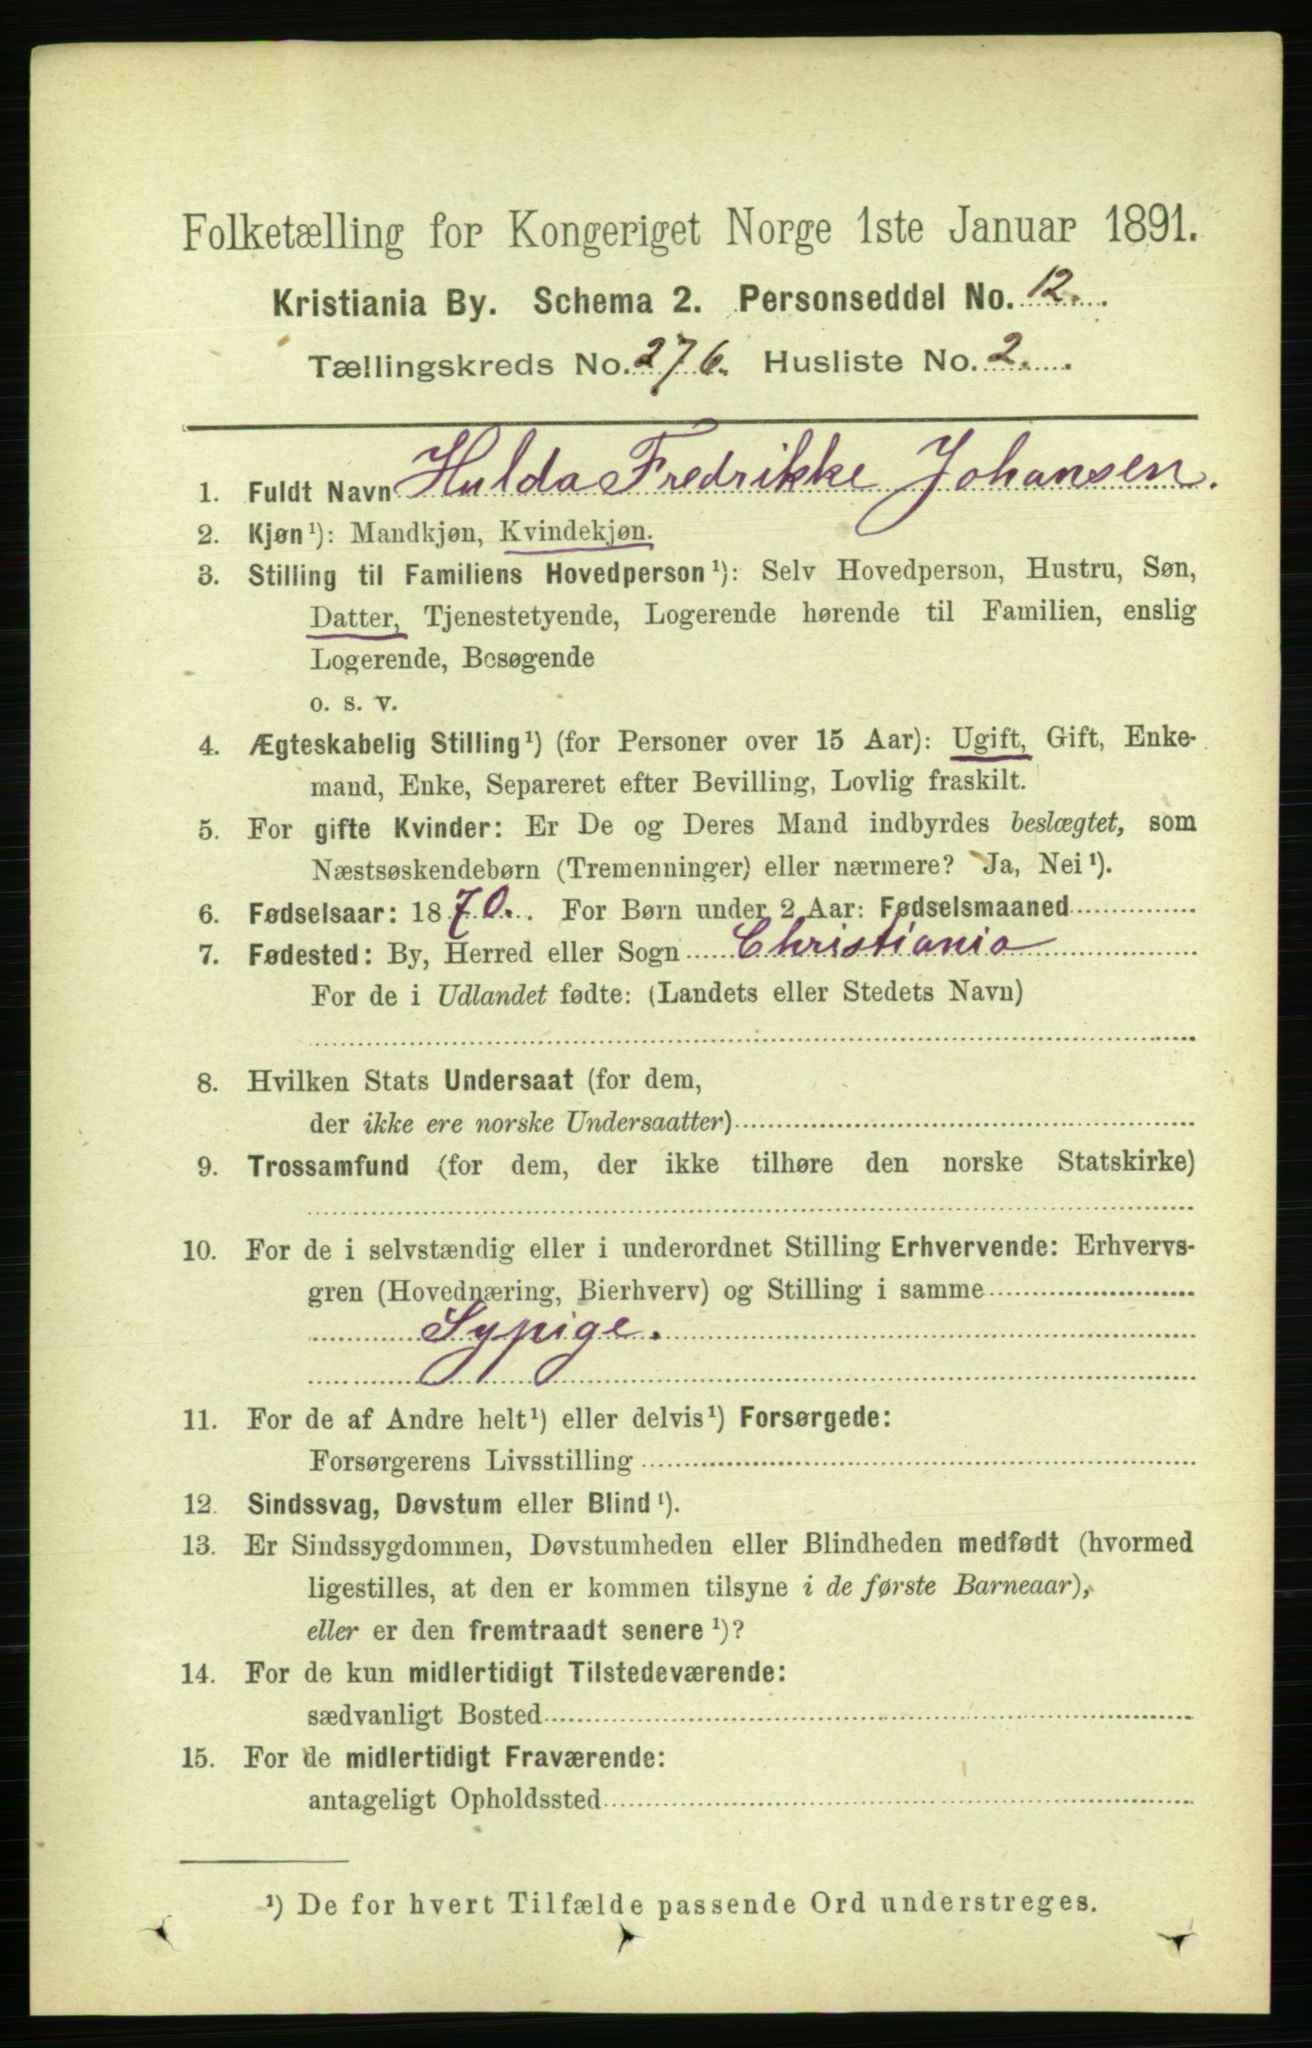 Folketælling for Kongeriget Norge 1ste Januar 1891.
Kristiania By. Schema 2. Personseddel No. 12.
Tællingskreds No. 276. Husliste No. 2.
1. Fuldt Navn Hulda Fredrikke Johansen.
2. Kjøn ¹): Mandkjøn, Kvindekjøn.
3. Stilling til Familiens Hovedperson ¹): Selv Hovedperson, Hustru, Søn,
Datter, Tjenestetyende, Logerende hørende til Familien, enslig
Logerende, Besøgende
o. s. v.
4. Ægteskabelig Stilling ¹) (for Personer over 15 Aar): Ugift, Gift, Enke-
mand, Enke, Separeret efter Bevilling, Lovlig fraskilt.
5. For gifte Kvinder: Er De og Deres Mand indbyrdes beslægtet, som
Næstsøskendebørn (Tremenninger) eller nærmere? Ja, Nei ¹).
6. Fødselsaar: 1870. For Børn under 2 Aar: Fødselsmaaned
7. Fødested: By, Herred eller Sogn Christiania
For de i Udlandet fødte: (Landets eller Stedets Navn)
8. Hvilken Stats Undersaat (for dem,
der ikke ere norske Undersaatter)
9. Trossamfund (for dem, der ikke tilhøre den norske Statskirke)
10. For de i selvstændig eller i underordnet Stilling Erhvervende: Erhvervs-
gren (Hovednæring, Bierhverv) og Stilling i samme
Sypige.
11. For de af Andre helt ¹) eller delvis ¹) Forsørgede:
Forsørgerens Livsstilling
12. Sindssvag, Døvstum eller Blind ¹).
13. Er Sindssygdommen, Døvstumheden eller Blindheden medfødt (hvormed
ligestilles, at den er kommen tilsyne i de første Barneaar),
eller er den fremtraadt senere ¹)?
14. For de kun midlertidigt Tilstedeværende:
sædvanligt Bosted
15. For de midlertidigt Fraværende:
antageligt Opholdssted
¹) De for hvert Tilfælde passende Ord understreges.